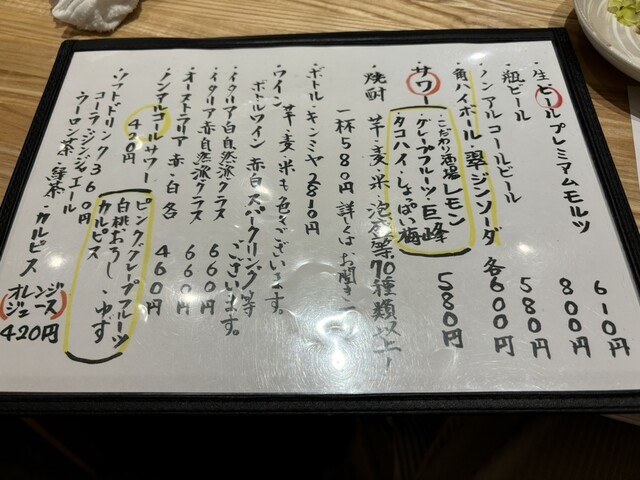 ・生ビールプレミアムモルツ 610円
・瓶ビール 800円
・ノンアルコールビール 580円
・角ハイボール・翠ジンソーダ 各600円
・サワー
・こだわり酒場レモン
・グレープフルーツ・巨峰
・タコハイ・しょっぱい梅
580円
・焼酎 芋・麦・米・泡盛等70種類以上!
一杯580円 詳しくはお聞き
・ボトル キンミヤ 2810円
芋・麦・米も色々ございます。
・ワイン
ボトルワイン 赤白スパークリング等
ございます。
・イタリア白自然派グラス 660円
・イタリア赤自然派グラス 660円
・オーストラリア赤・白 各460円
・ノンアルコールサワー
420円
ピンクグレープフルーツ
白桃おうし、ゆず
カルピス
・ソフトドリンク360円
コーラ・ジンジャエール
ウーロン茶・緑茶・カルピス
オレンジ
ジュース
420円